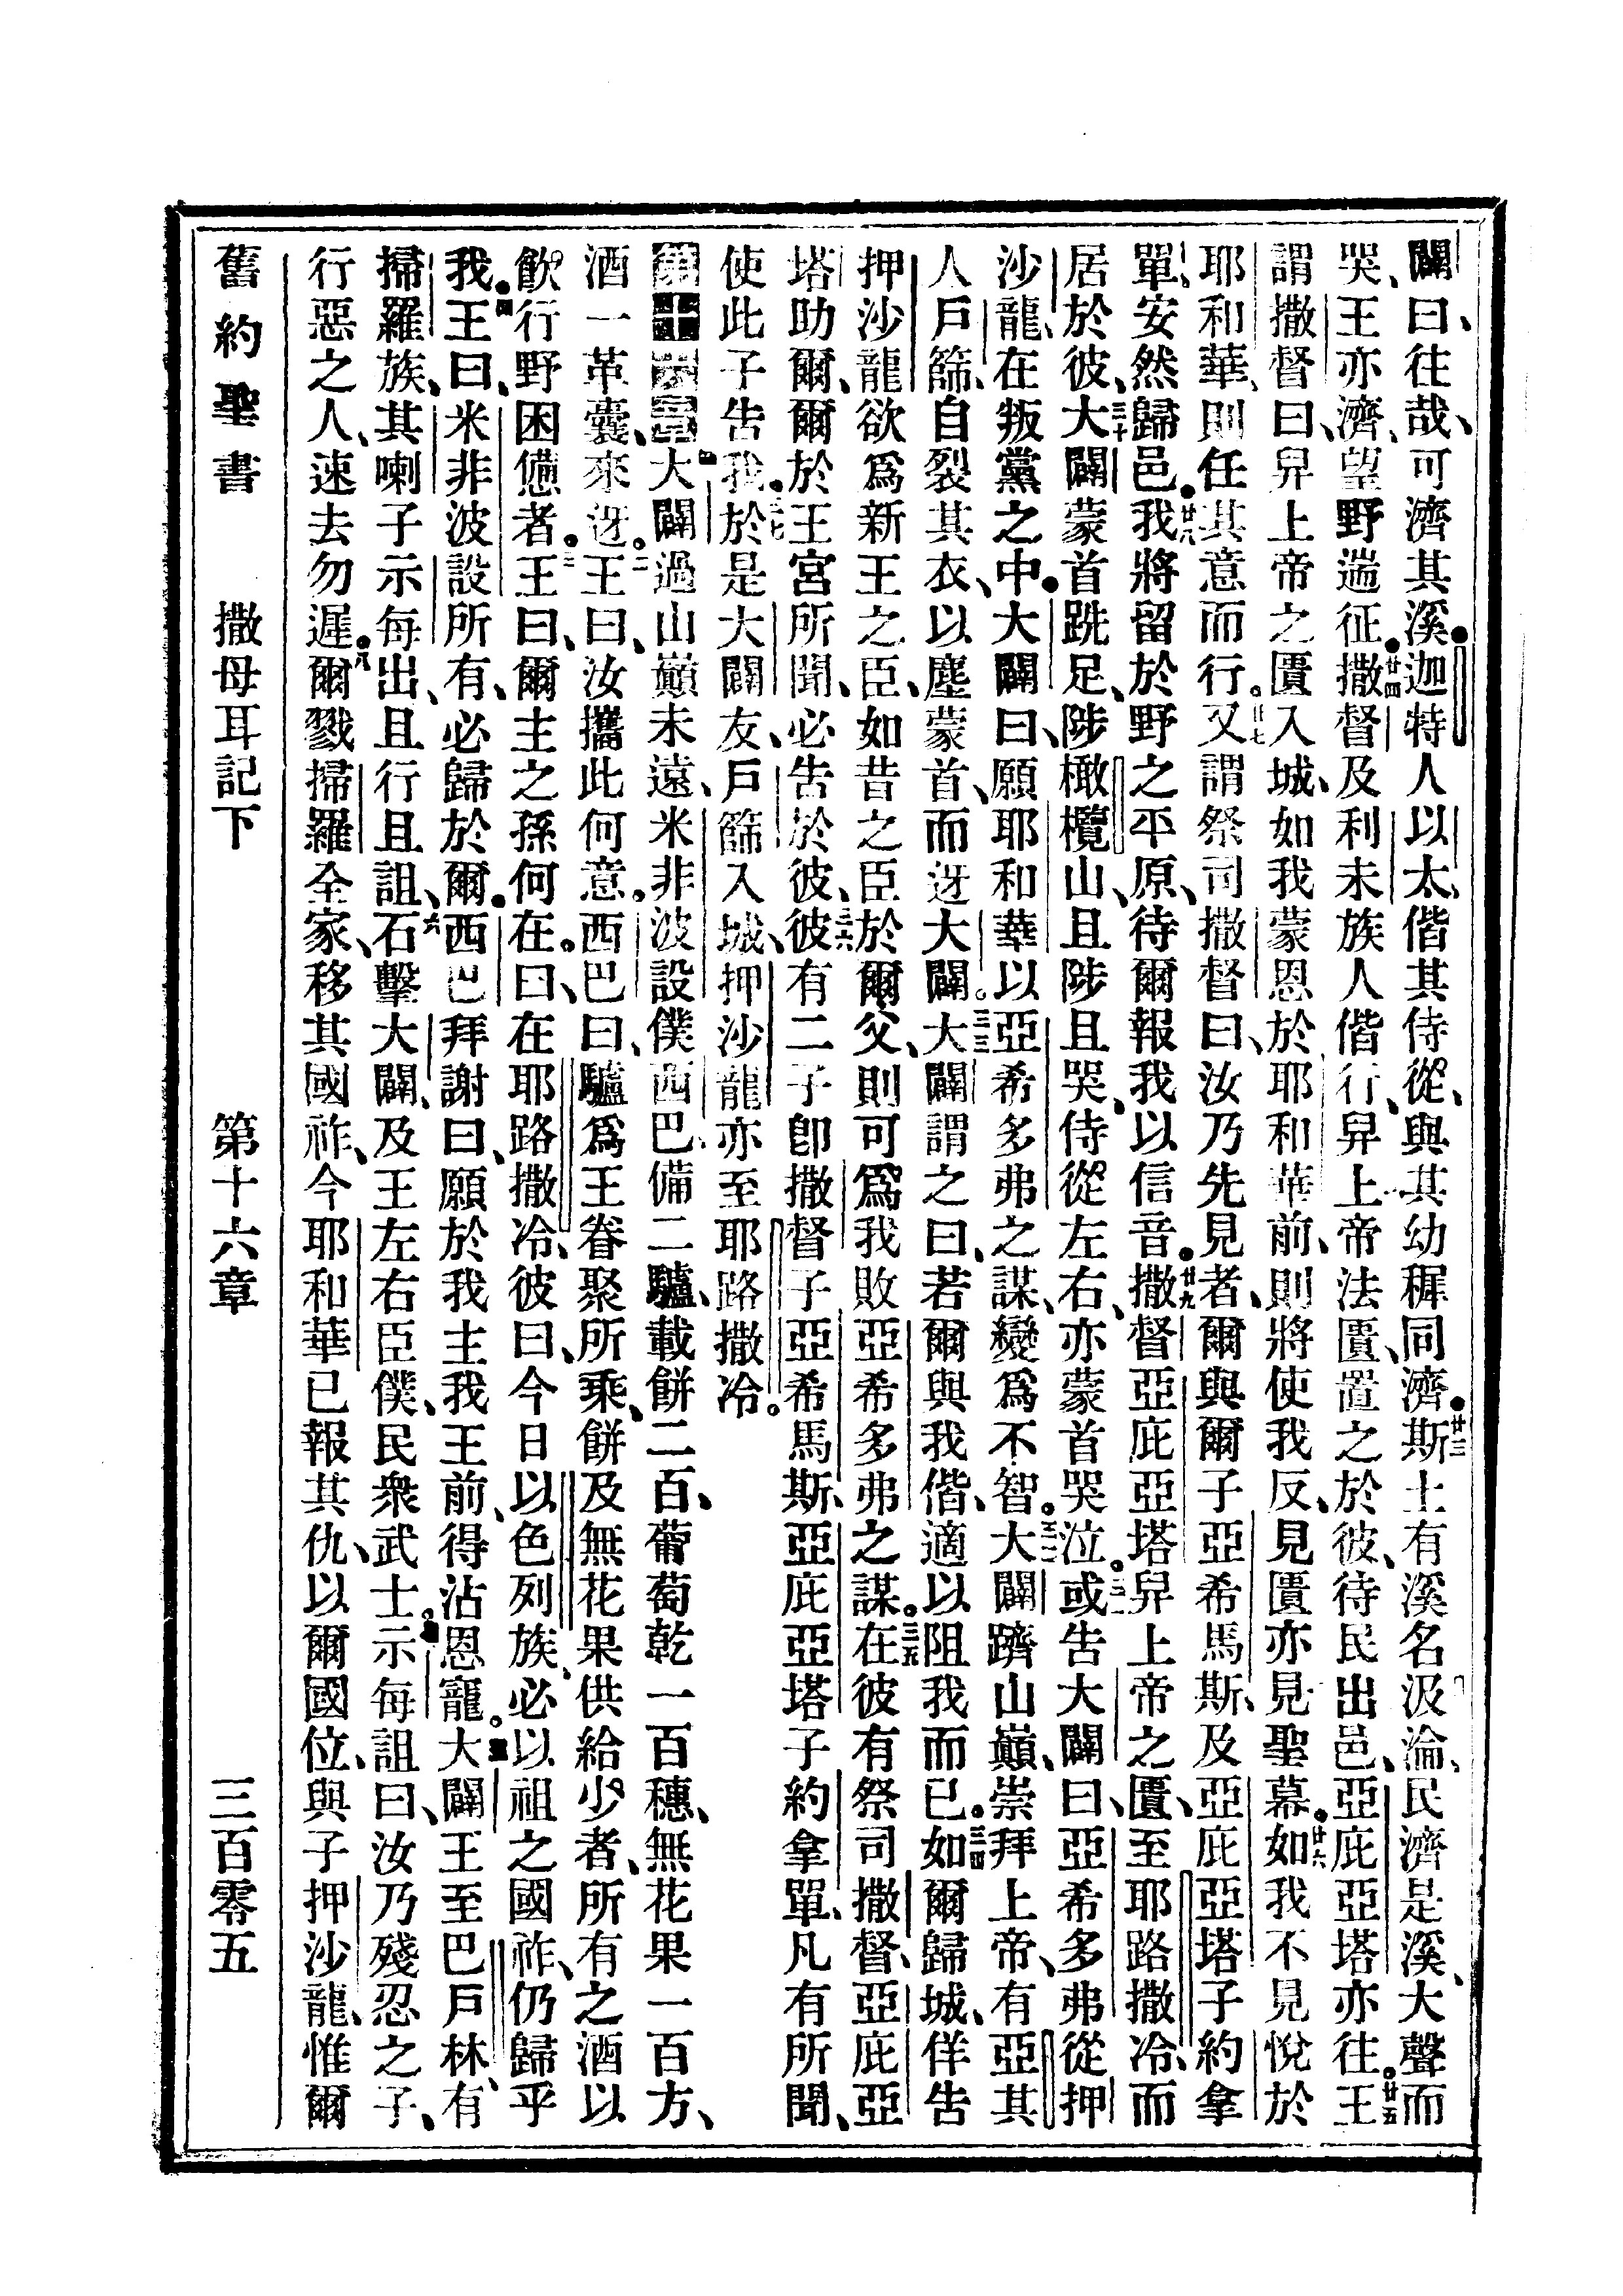 闢曰、往哉、可濟其溪。迦特人以太、偕其侍從、與其幼穉同濟。廿三斯土有溪名汲淪、民濟是溪、大聲而
哭、王亦濟、望野遄征。廿四撒督及利未族人偕行、舁上帝法匱、置之於彼、待民出邑、亞庇亞塔亦往。廿五王
謂撒督曰、舁上帝之匱入城、如我蒙恩於耶和華前、則將使我反、見匱亦見聖幕。廿六如我不見悅於
耶和華、則任其意而行。廿七又謂祭司撒督曰、汝乃先見者、爾與爾子亞希馬斯、及亞庇亞塔子約拿
單、安然歸邑。廿八我將留於野之平原、待爾報我以信音。廿九撒督亞庇亞塔舁上帝之匱、至耶路撒冷、而
居於彼、三十大闢蒙首跣足、陟橄欖山、且陟且哭、侍從左右、亦蒙首哭泣。三一或告大闢曰、亞希多弗從押
沙龍、在叛黨之中。大闢曰、願耶和華以亞希多弗之謀、變爲不智。三二大闢躋山巔、崇拜上帝、有亞其
人戶篩、自裂其衣、以塵蒙首、而迓大闢。三三大闢謂之曰、若爾與我偕、適以阻我而已。三四如爾歸城、佯告
押沙龍、欲爲新王之臣、如昔之臣於爾父、則可爲我敗亞希多弗之謀。三五在彼有祭司撒督、亞庇亞
塔助爾、爾於王宮所聞、必告於彼、三六彼有二子、卽撒督子亞希馬斯、亞庇亞塔子約拿單、凡有所聞、
使此子告我。三七於是大闢友、戶篩入城、押沙龍亦至耶路撒冷。
第十六章 一大闢過山巔未遠、米非波設僕西巴、備二驢、載餅二百、葡萄乾一百穗、無花果一百方、
酒一革囊、來迓。二王曰、汝攜此何意。西巴曰、驢爲王眷聚所乘、餅及無花果供給少者、所有之酒以
飮行野困憊者。三王曰、爾主之孫何在。曰、在耶路撒冷、彼曰、今日以色列族、必以祖之國祚、仍歸乎
我。四王曰、米非波設所有、必歸於爾。西巴拜謝曰、願於我主我王前、得沾恩寵。五大闢王至巴戶林、有
掃羅族、其喇子示每出、且行且詛、六石擊大闢、及王左右臣僕、民衆武士。七示每詛曰、汝乃殘忍之子、
行惡之人、速去勿遲。八爾戮掃羅全家、移其國祚、今耶和華已報其仇、以爾國位、與子押沙龍、惟爾
舊約聖書 撒母耳記下 第十六章 三百零五